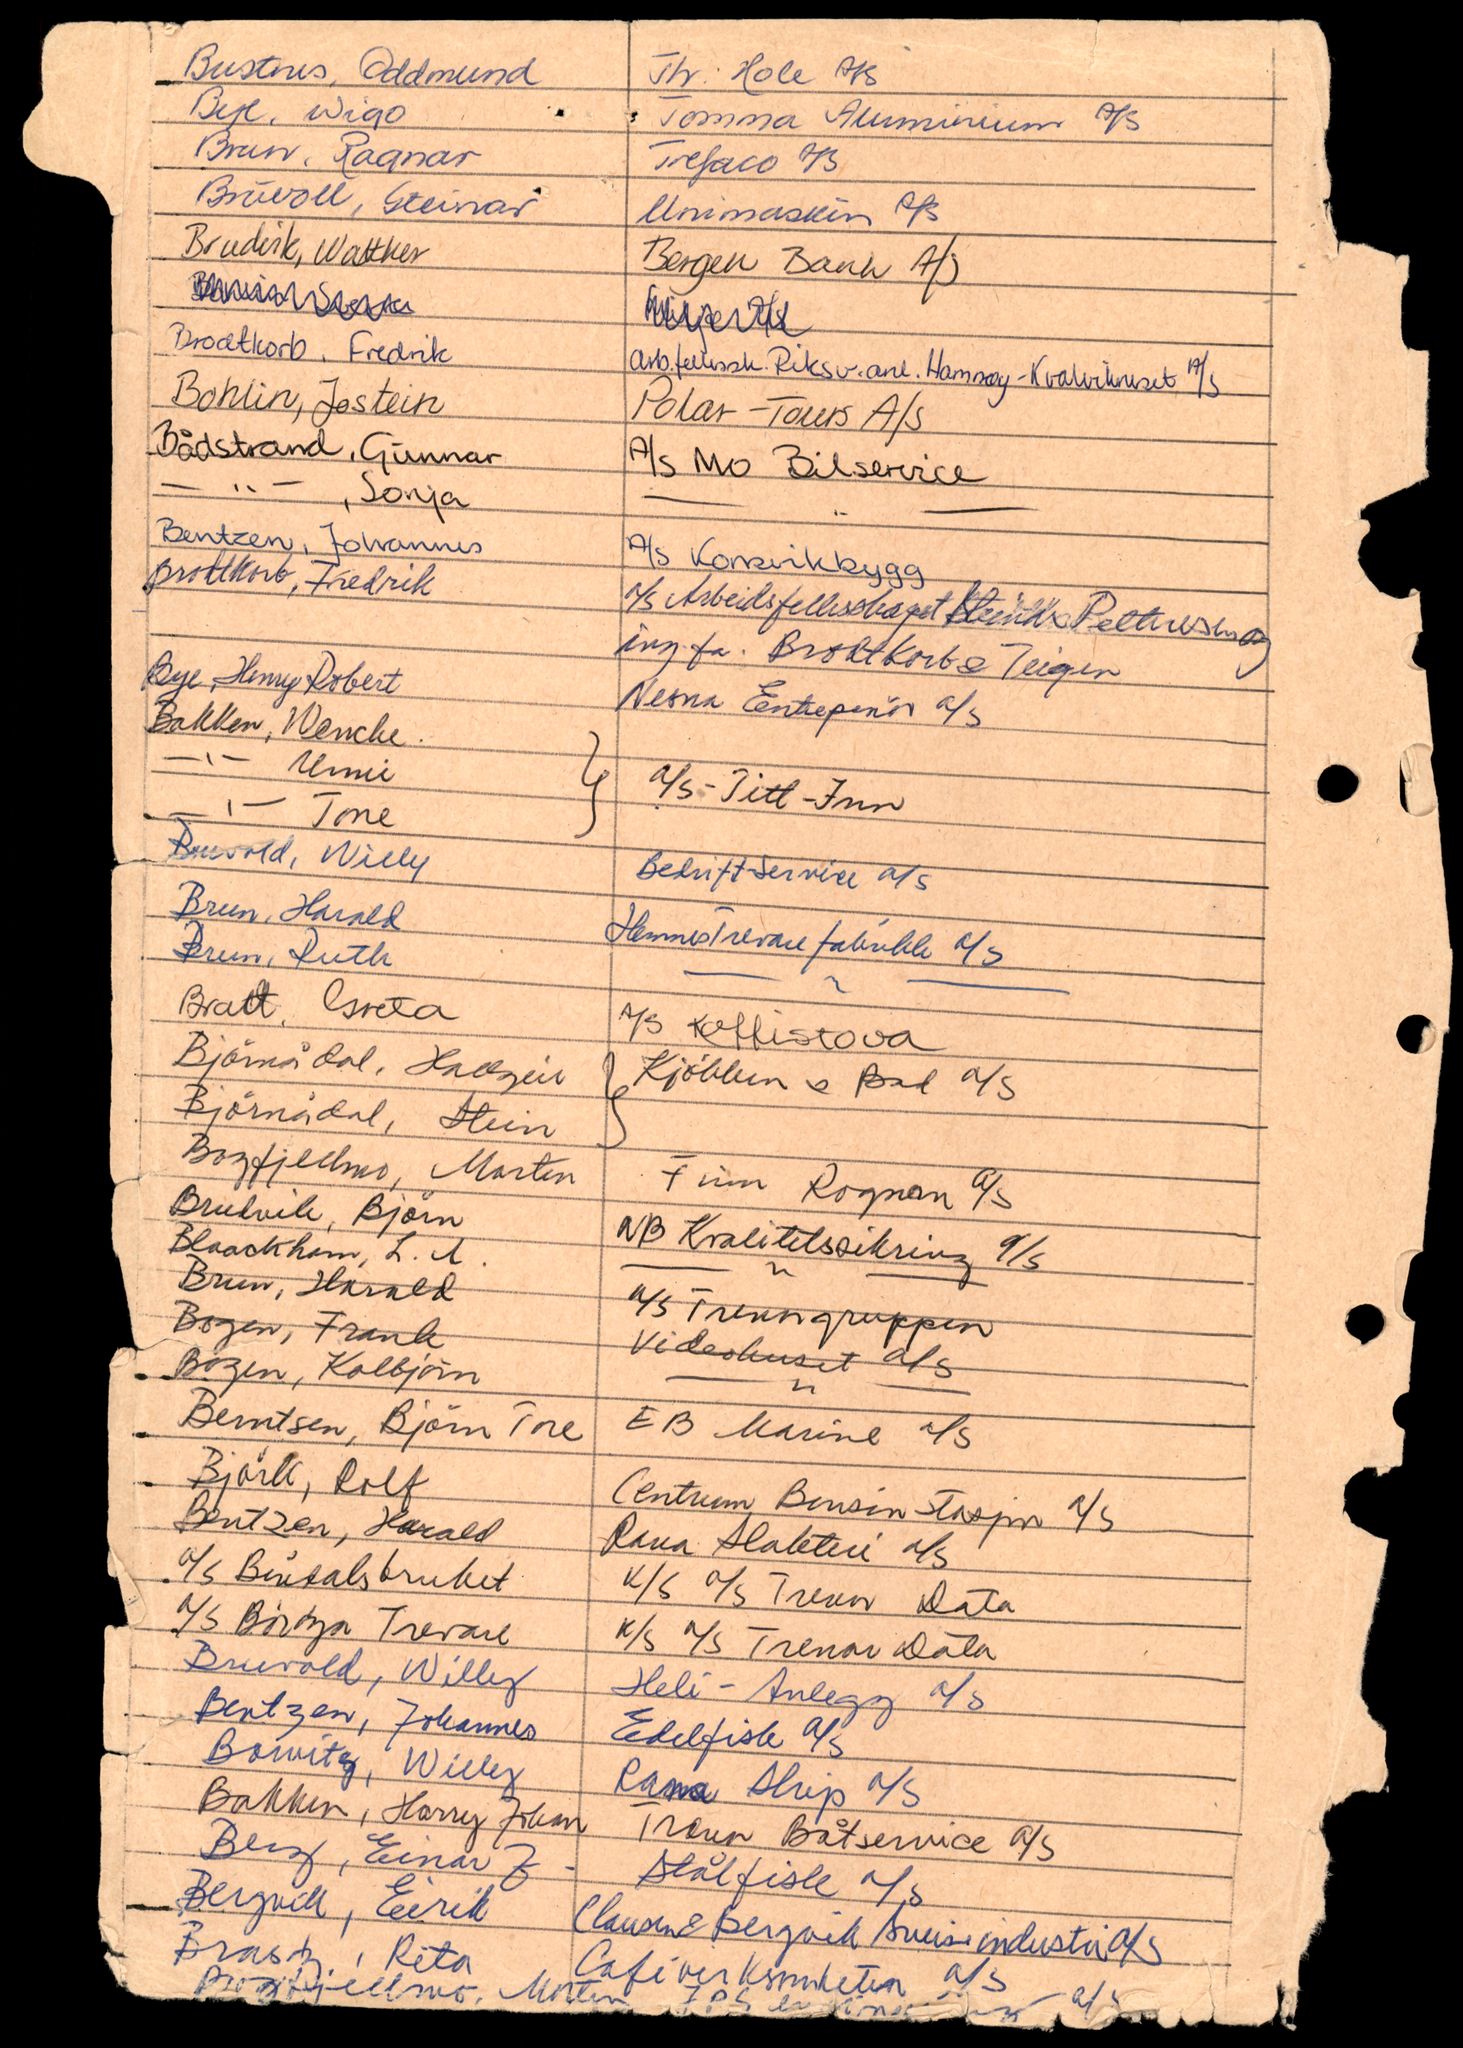 Bustnes, Oddmund Thr. Hole A/S
Bye, Wigo Tomma Aluminium A/S
Brun, Ragnar Trefaco A/S
Brüvoll, Steinar Unimaskin A/S
Brudvik, Walther Bergen Bank A/S
Brodtkorb, Fredrik Arb.fellessk. Riksv.anl. Hamnøy-Kvalvikneset A/S
Bohlin, Jostein Polar-Tours A/S
Bådstrand, Gunnar A/S Mo Bilservice
— " — , Sonja — " —
Bentzen, Johannes A/S Korsvikbygg
Brodtkorb, Fredrik a/s Arbeidsfellesskapet og
ing.fa. Brodtkorb & Teigen
Bye, Henry Robert Nesna Entrepenör a/s
Bakken, Wenche
— " — Unni a/s - Titt - Inn
— " — Tone
Bruvold, Willy Bedrift-Service a/s
Brun, Harald Hemnes Trevarefabrikk a/s
Brun, Ruth — " —
Bratt, Greta A/S Kaffistova
Björnådal, Hallgeir Kjökken & Bad a/s
Björnådal, Stein
Bogfjellmo, Morten Finn Rognan a/s
Brudvik, Björn NB Kvalitetssikring a/s
Blaackham, L. A. — " —
Brun, Harald a/s Trenorgruppen
Bogen, Frank Videohuset a/s
Bogen, Kolbjörn — " —
Berntsen, Björn Tore EB Marine a/s
Björk, Rolf Centrum Bensinstasjon a/s
Bentzen, Harald Rana Slakteri a/s
a/s Bindalsbruket K/S a/s Trenor Data
a/s Bördya Trevare K/S a/s Trenor Data
Bruvold, Willy Heli-Anlegg a/s
Bentzen, Johannes Edelfisk a/s
Borvitz, Willy Rana Skip a/s
Bakken, Harry Johan Træna Båtservice a/s
Berg, Einar J. Stålfisk a/s
Bergvik, Eirik Clausen & Bergvik Sveiseindustri a/s
Rita Cafévirksomheten a/s
Bogfjellmo, Morten a/s